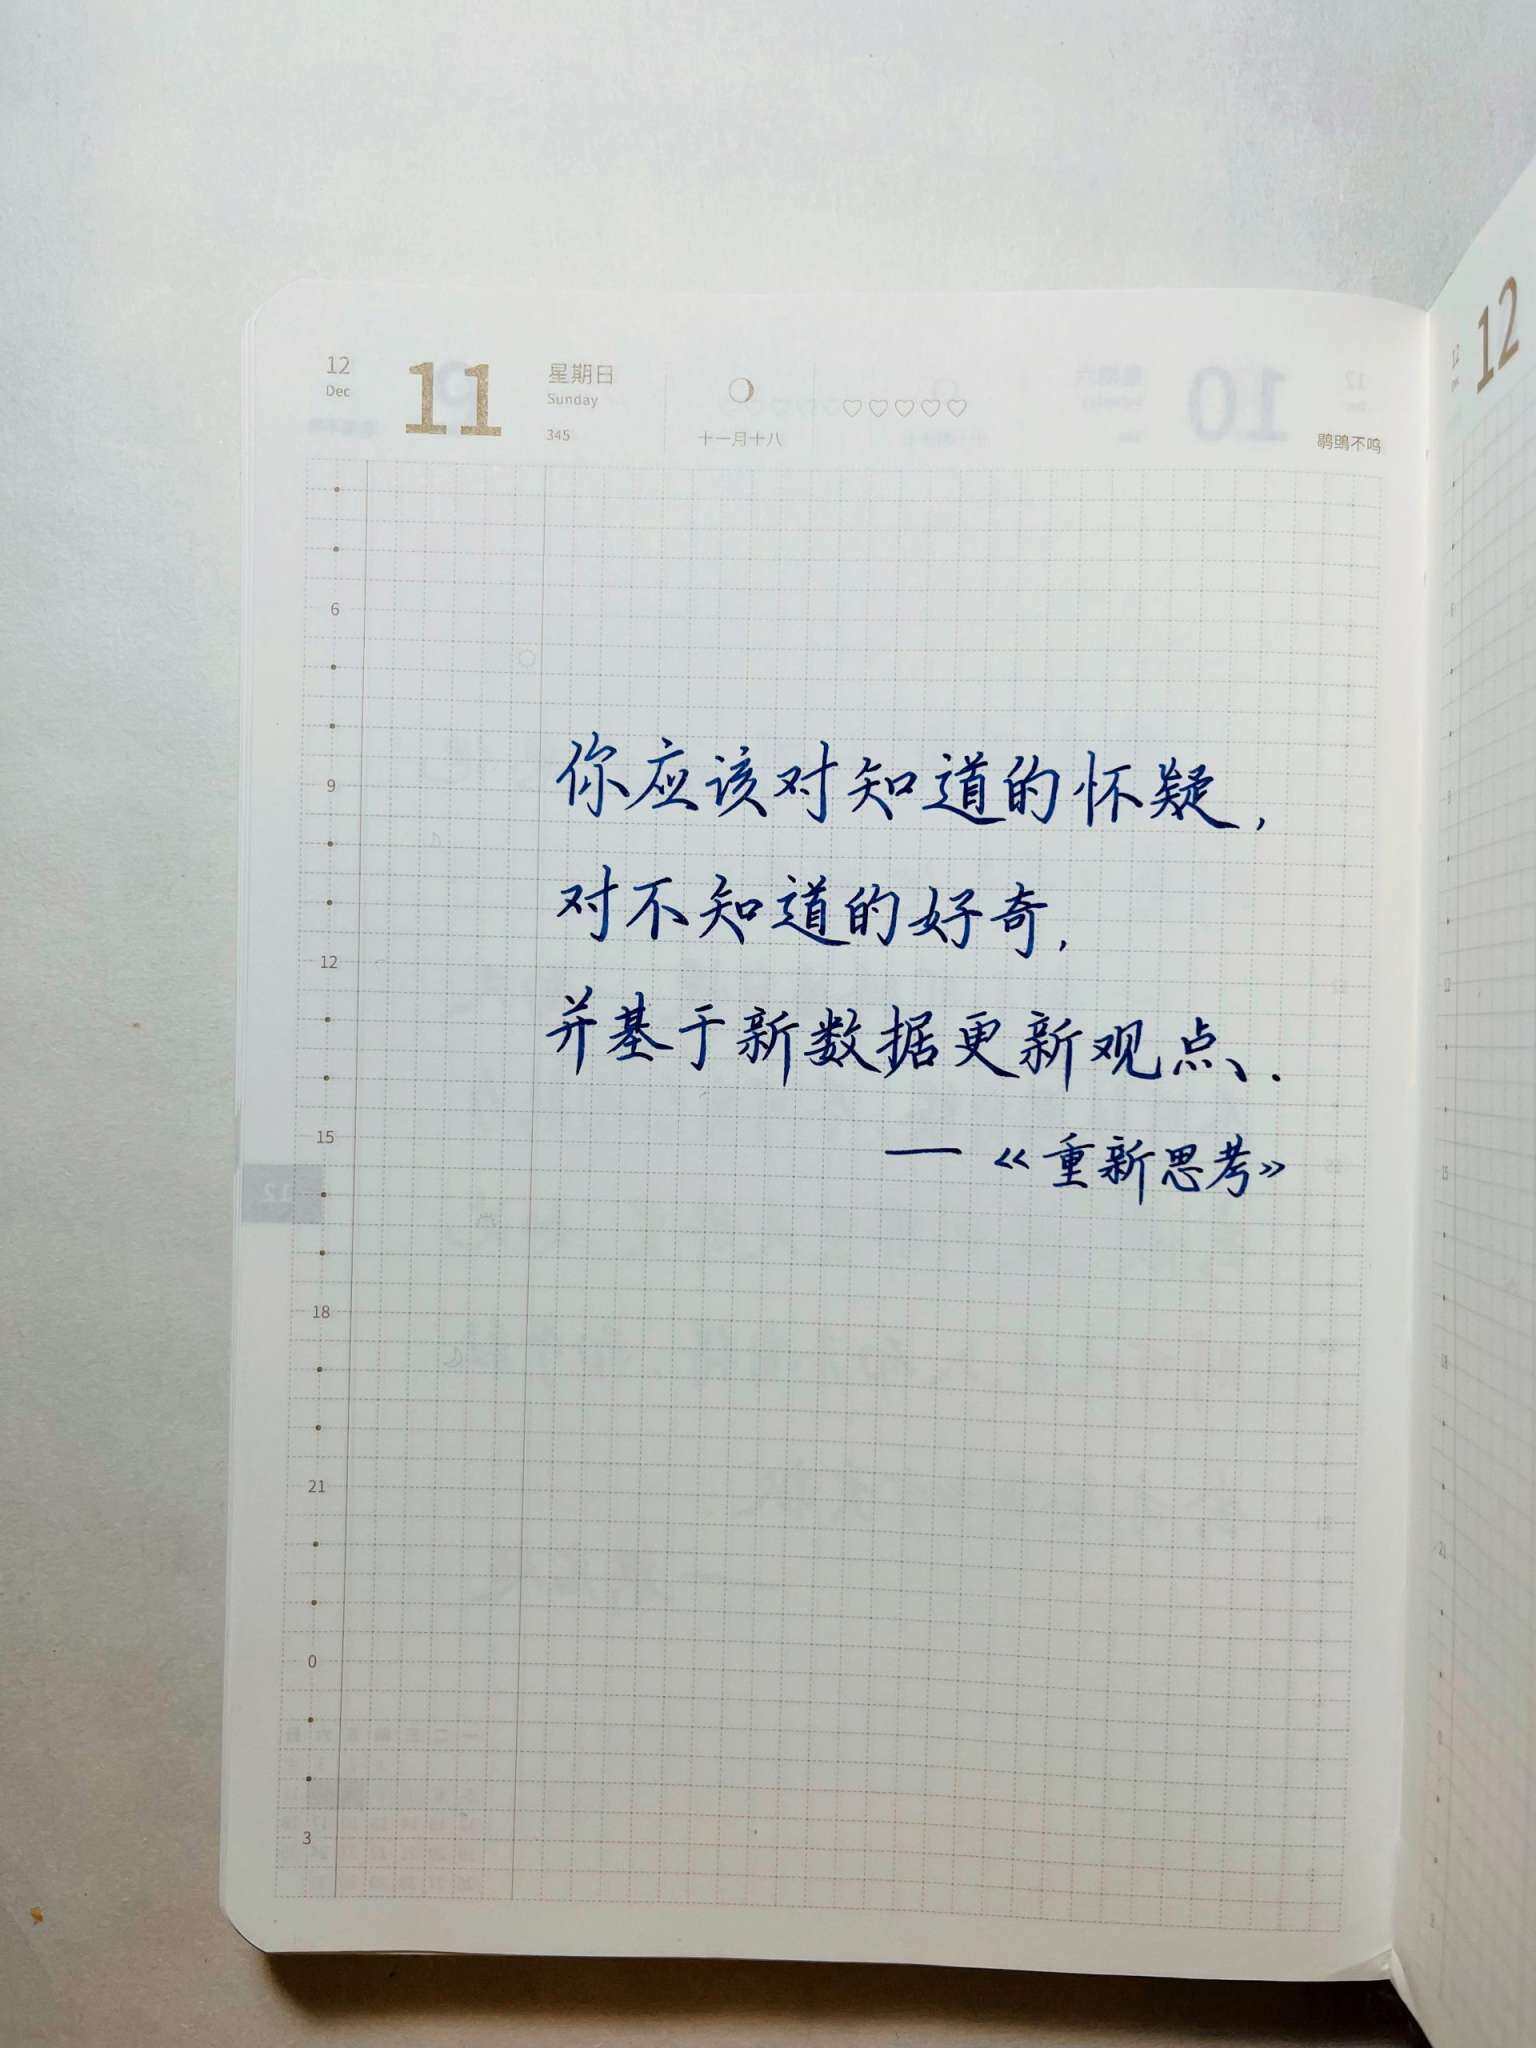 12
Dec
11
星期日
Sunday
345
十一月十八
鹖鴠不鸣
你应该对知道的怀疑,
对不知道的好奇,
并基于新数据更新观点、.
—《重新思考》
6
9
12
15
18
21
0
3
12
12